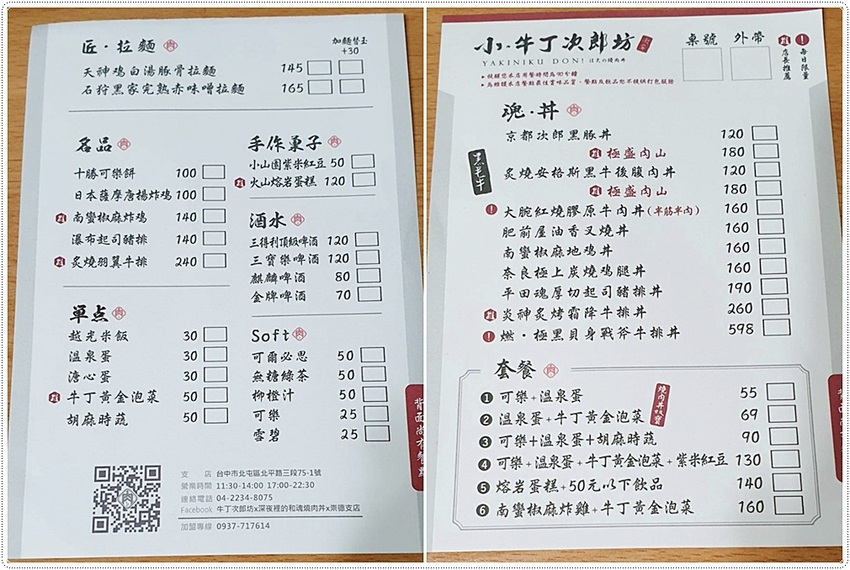 匠·拉麵
加麵替玉
+30
天神鸡白湯豚骨拉麵 145
石狩黑家完熟赤味噌拉麵 165
名品
十勝可樂餅 100
日本薩摩唐揚炸鸡 100
南蠻椒麻炸鸡 140
瀑布起司豬排 140
炙燒羽翼牛排 240
単点
越光米飯 30
溫泉蛋 30
溏心蛋 30
牛丁黃金泡菜 50
胡麻時蔬 50
手作菓子
小山園紫米紅豆 50
火山熔岩蛋糕 120
酒水
三得利頂級啤酒 120
三寶樂啤酒 120
麒麟啤酒 80
金牌啤酒 70
Soft
可爾必思 50
無糖綠茶 50
柳橙汁 50
可樂 25
雪碧 25
支 店 台中市北屯區北平路三段75-1號
營業時間 11:30-14:00 17:00-22:30
連絡電話 04-2234-8075
Facebook 牛丁次郎坊x深夜裡的和魂燒肉丼x崇德支店
加盟專線 0937-717614
小·牛丁次郎坊
YAKINIKU DON!
桌號 外帶
店長推薦
每日限量
魂·丼
京都次郎黑豚丼 120
極盛肉山 180
炙燒安格斯黑牛後腹肉丼 120
極盛肉山 180
大腕紅燒膠原牛肉丼(半筋半肉) 160
肥前屋油香叉燒丼 160
南蠻椒麻地鸡丼 160
奈良極上炭燒鸡腿丼 160
平田魂厚切起司豬排丼 190
炎神炙烤霜降牛排丼 260
燃·極黑貝身戰斧牛排丼 598
套餐
燒肉丼效寶
1 可樂+溫泉蛋 55
2 溫泉蛋+牛丁黃金泡菜 69
3 可樂+溫泉蛋+胡麻時蔬 90
4 可樂+溫泉蛋+牛丁黃金泡菜+紫米紅豆 130
5 熔岩蛋糕+50元以下飲品 140
6 南蠻椒麻炸雞+牛丁黃金泡菜 160